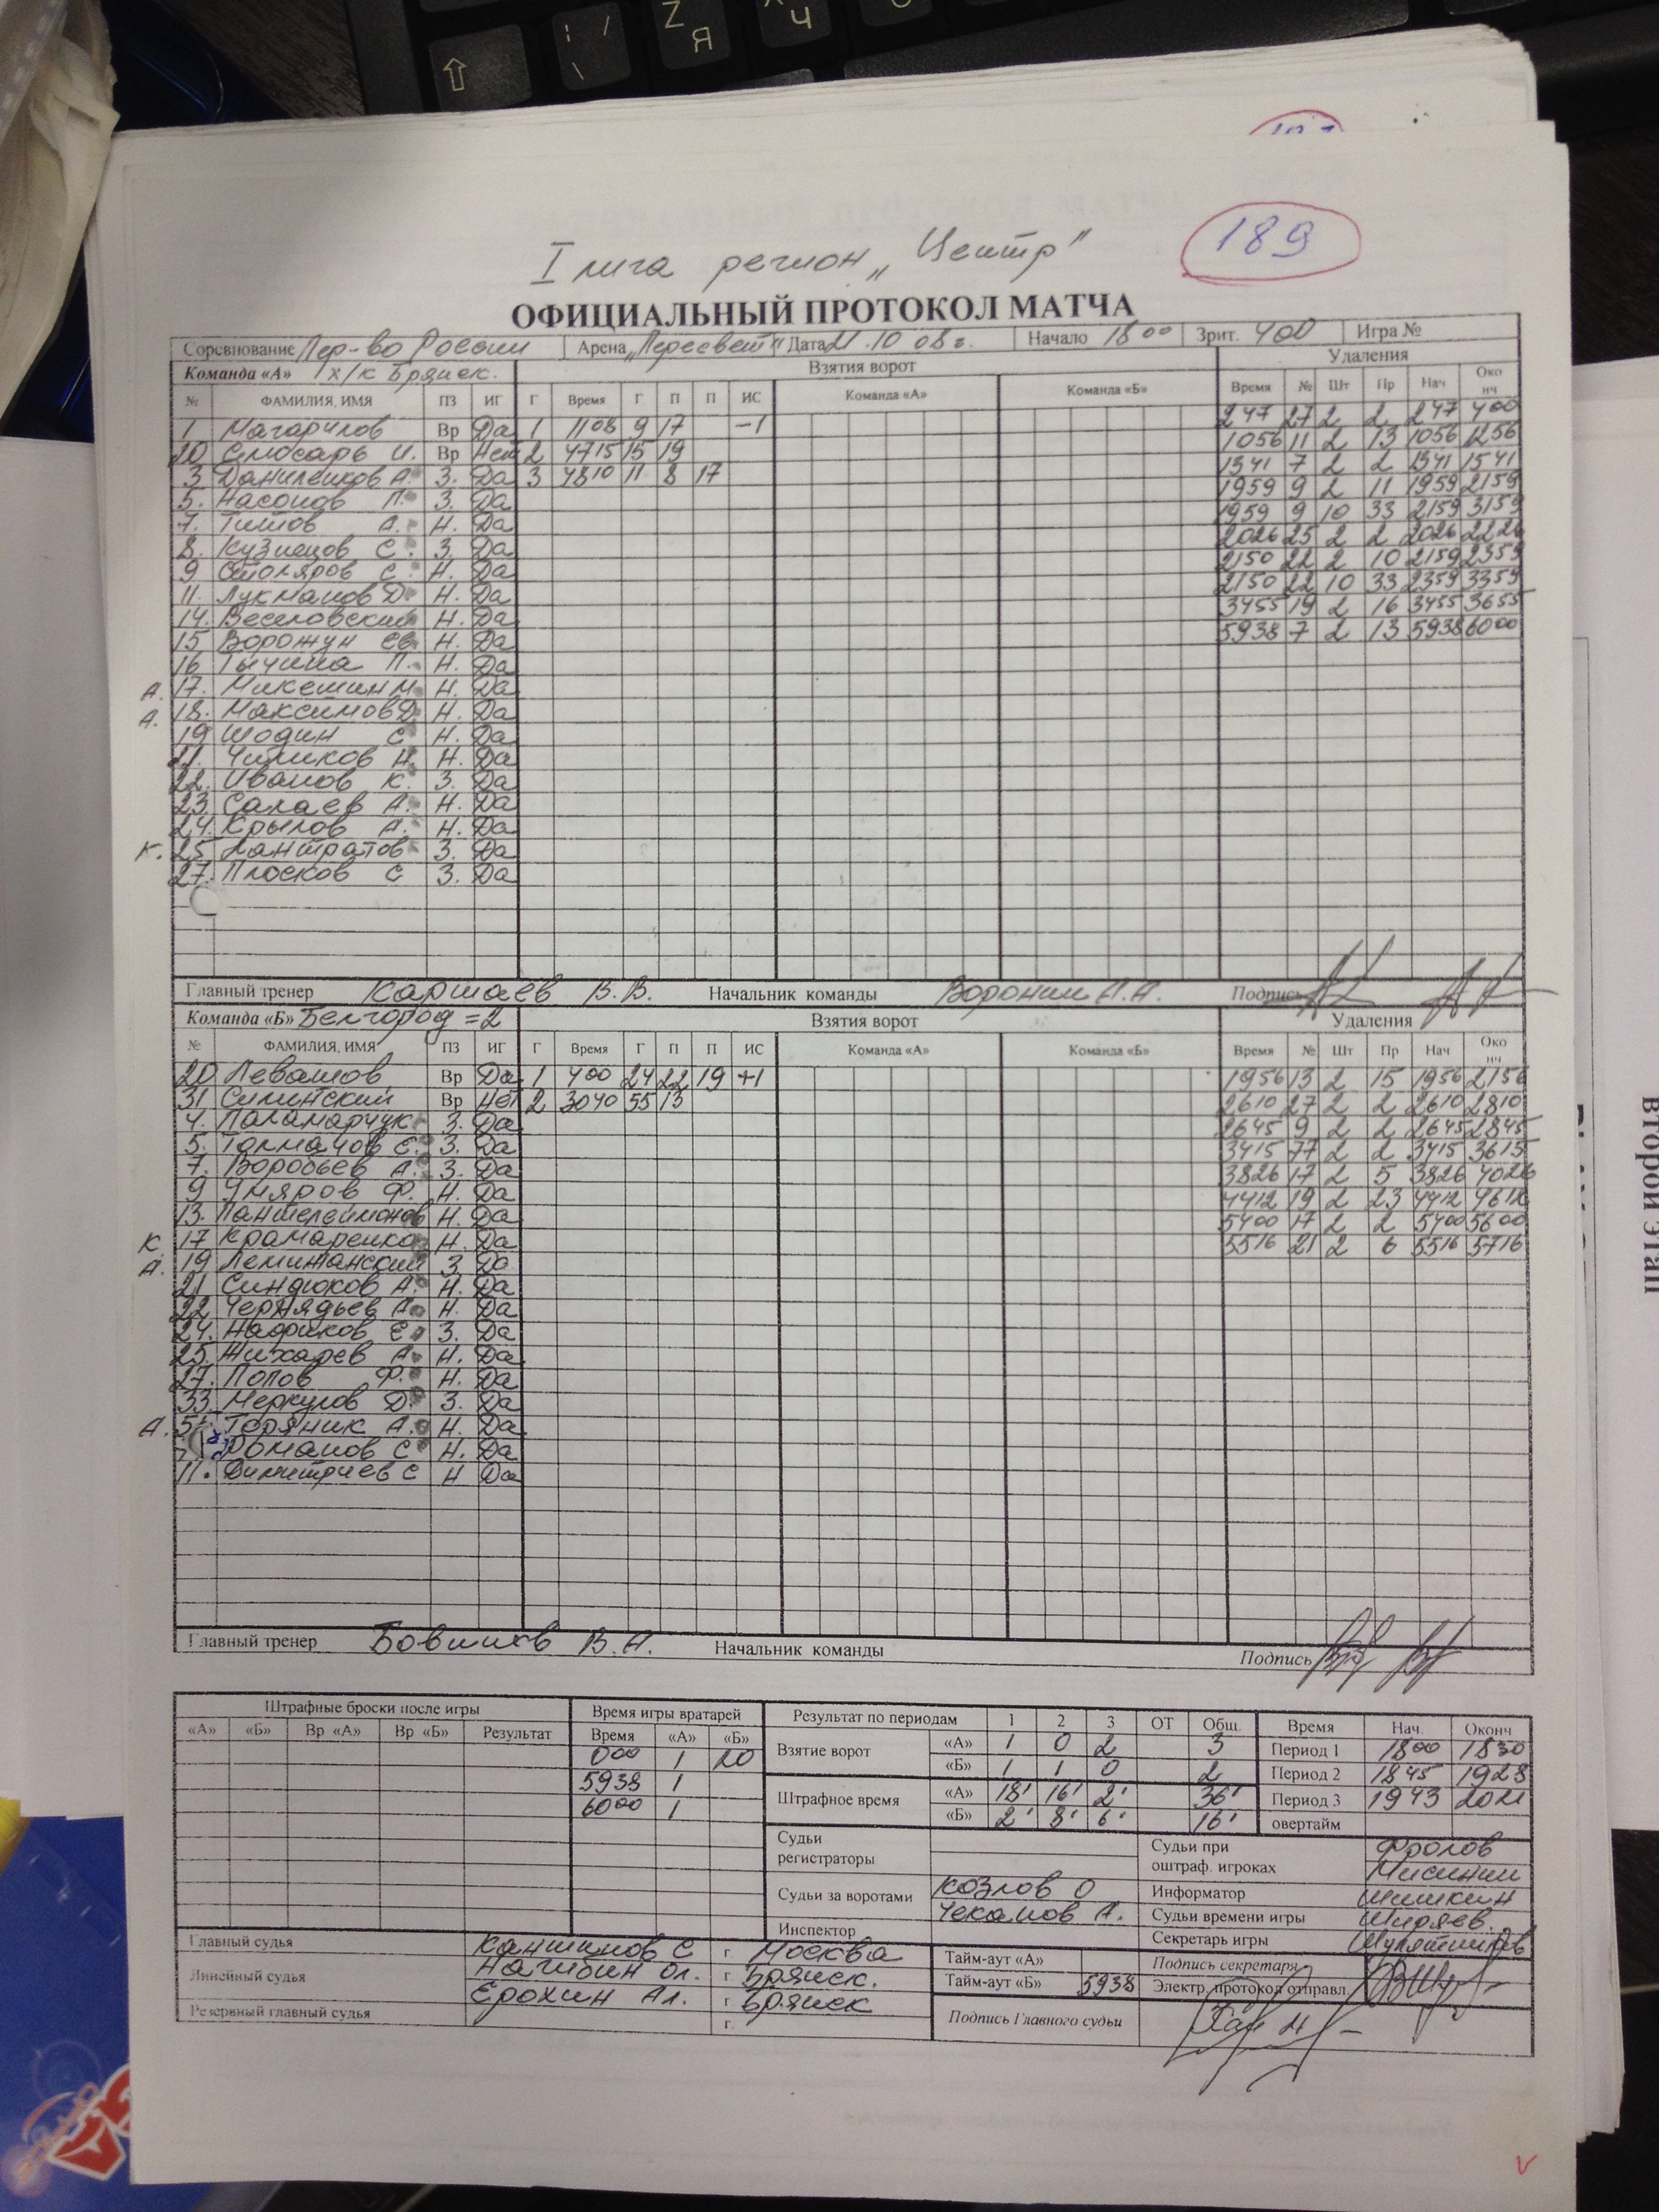 189
I лига регион „Центр"
ОФИЦИАЛЬНЫЙ ПРОТОКОЛ МАТЧА
Соревнование Пер-во России Арена „Пересвет" Дата 21.10 08 г. Начало 18 00 Зрит. 400 Игра №
Команда «А» х/к Брянск. Взятия ворот Удаления
№ ФАМИЛИЯ, ИМЯ ПЗ ИГ Г Время Г П П ИС Команда «А» Команда «Б» Время № Шт Пр Нач Око нч
1 Магарилов Вр Да 1 1108 9 17 -1 247 27 2 2 247 400
20 Слюсарь И. Вр Нет 2 4715 15 19 1056 11 2 13 1056 1256
3 Даниленков А. З. Да 3 4810 11 8 17 1341 7 2 2 1341 1541
5. Насонов П. З. Да 1959 9 2 11 1959 2159
7. Титов А. Н. Да 1959 9 10 33 2159 3159
8. Кузнецов С. З. Да 2026 25 2 2 2026 2226
9 Столяров С. Н. Да 2150 22 2 10 2159 2359
11. Лукманов Д. Н. Да 2150 22 10 33 2359 3359
14. Веселовский Н. Да 3455 19 2 16 3455 3655
15 Ворожун Ев. Н. Да 5938 7 2 13 5938 6000
16 Тычина П. Н. Да
А. 17. Микешин М. Н. Да
А. 18. Максимов Д. Н. Да
19 Шодин С Н. Да
21. Читиков Н. Н. Да
22. Иванов К. З. Да
23. Салаев А. Н. Да
24. Крылов А. Н. Да
К. 25 Лантратов З. Да
27. Плосков С З. Да
Главный тренер Каршаев В.В. Начальник команды Воронин А.А. Подпись
Команда «Б» Белгород =2 Взятия ворот Удаления
№ ФАМИЛИЯ, ИМЯ ПЗ ИГ Г Время Г П П ИС Команда «А» Команда «Б» Время № Шт Пр Нач Око нч
20 Левашов Вр Да 1 400 24 22 19 +1 1956 13 2 15 1956 2156
31 Силинский Вр Нет 2 3040 55 13 2610 27 2 2 2610 2810
4. Паламарчук З. Да 2645 9 2 2 2645 2845
5. Толмачов Е. З. Да 3415 77 2 2 3415 3615
7. Воробьев А. З. Да 3826 17 2 5 3826 4026
9 Умяров Ф. Н. Да 4412 19 2 23 4412 4612
13. Пантелеймонов Н. Да 5400 17 2 2 5400 5600
К. 17 Крамаренко Н. Да 5516 21 2 6 5516 5716
А. 19 Лемитанский З. Да
21 Синдюков А. Н. Да
22 Чернядьев А. Н. Да
24. Нафиков Е. З. Да
25. Жихарев А. Н. Да
27. Попов Ф. Н. Да
33. Меркулов Д. З. Да
А. Горяник А. Н. Да
Романов С Н. Да
11. Дмитриев С Н Да
Главный тренер Бовшиков В.А. Начальник команды Подпись
Штрафные броски после игры Время игры вратарей Результат по периодам 1 2 3 ОТ Общ. Время Нач. Оконч
«А» «Б» Вр «А» Вр «Б» Результат Время «А» «Б»
000 1 20 Взятие ворот «А» 1 0 2 3 Период 1 1800 1830
5938 1 «Б» 1 1 0 2 Период 2 1845 1928
6000 1 Штрафное время «А» 18' 16' 2' 36' Период 3 1943 2021
«Б» 2' 8' 6' 16' овертайм
Судьи регистраторы Судьи при оштраф. игроках Фролов
Мисинин
Судьи за воротами Козлов О Информатор Шишкин
Чеканов А. Судьи времени игры Ширяев.
Инспектор Секретарь игры
Главный судья Канишчов С г. Москва Тайм-аут «А» Подпись секретаря
Линейный судья Нагибин Ол. г. Брянск. Тайм-аут «Б» 5938 Электр. протокол отправл.
Ерохин Ал. г. Брянск
Резервный главный судья г. Подпись Главного судьи
второй этап